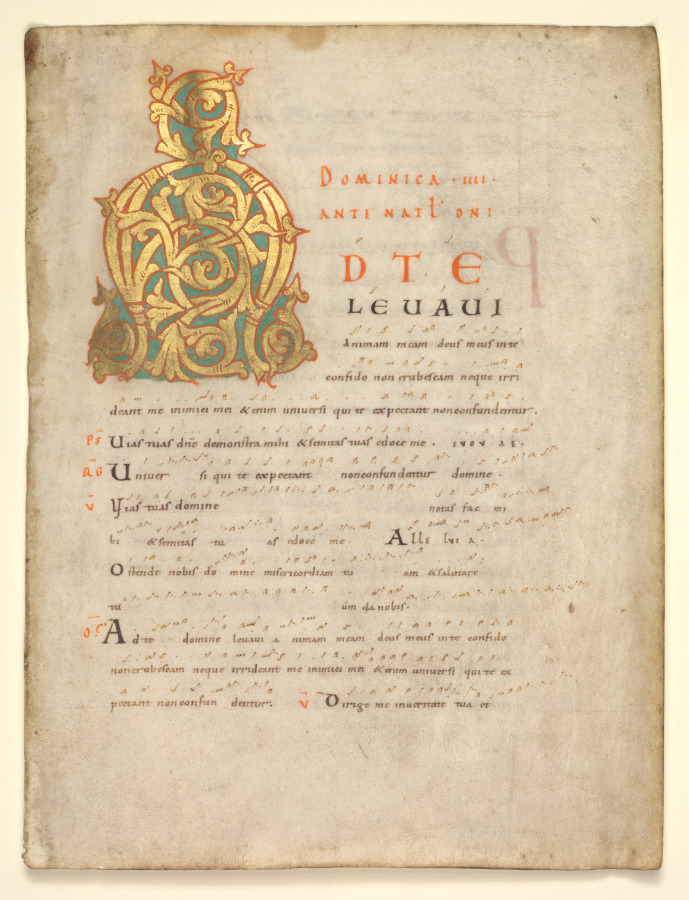 A
DOMINICA · IIII ·
ANTE NATL̅ DN̅I ·
D TE
LEUAUI
Animam meam deus meus in te
confido non erubescam neque irri
deant me inimici mei & enim uniuersi qui te expectant non confundentur.
Ps̅ Uias tuas dn̅e demonstra mihi & semitas tuas edoce me . EUOU AE .
RG̅ Uniuer si qui te expectant non confundentur domine .
V̅ Vias tuas domine notas fac mi
hi & semitas tu as edoce me . Alle luia .
Ostende nobis do mine misericordiam tu am & salutare
tu um da nobis .
OF̅ Ad te domine leuaui a nimam meam deus meus in te confido
non erubescam neque irrideant me inimici mei & enim uniuersi qui te ex
pectant non confun dentur . V̅ Dirige me in ueritate tua et